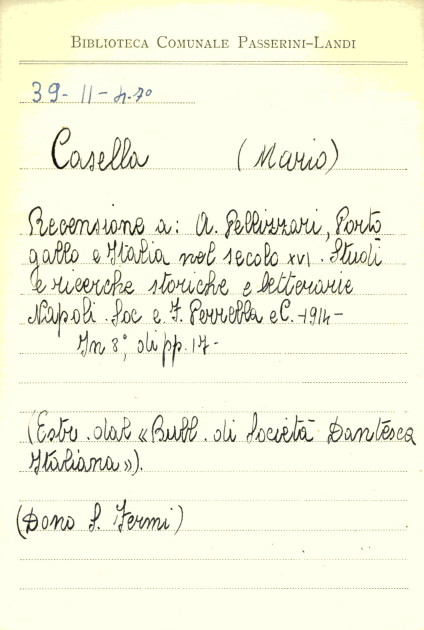 BIBLIOTECA COMUNALE PASSERINI-LANDI
39- II - 4.70
Casella (Mario)
Recensione a: A. Pellizzari, Porto
gallo e Italia nel secolo XVI. Studi
e ricerche storiche e letterarie
Napoli. Soc e. F. Perrella e C. -1914-
In 8°, di pp. 17-
(Estr. dal «Bull. di Società Dantesca
Italiana»).
(Dono S. Fermi)